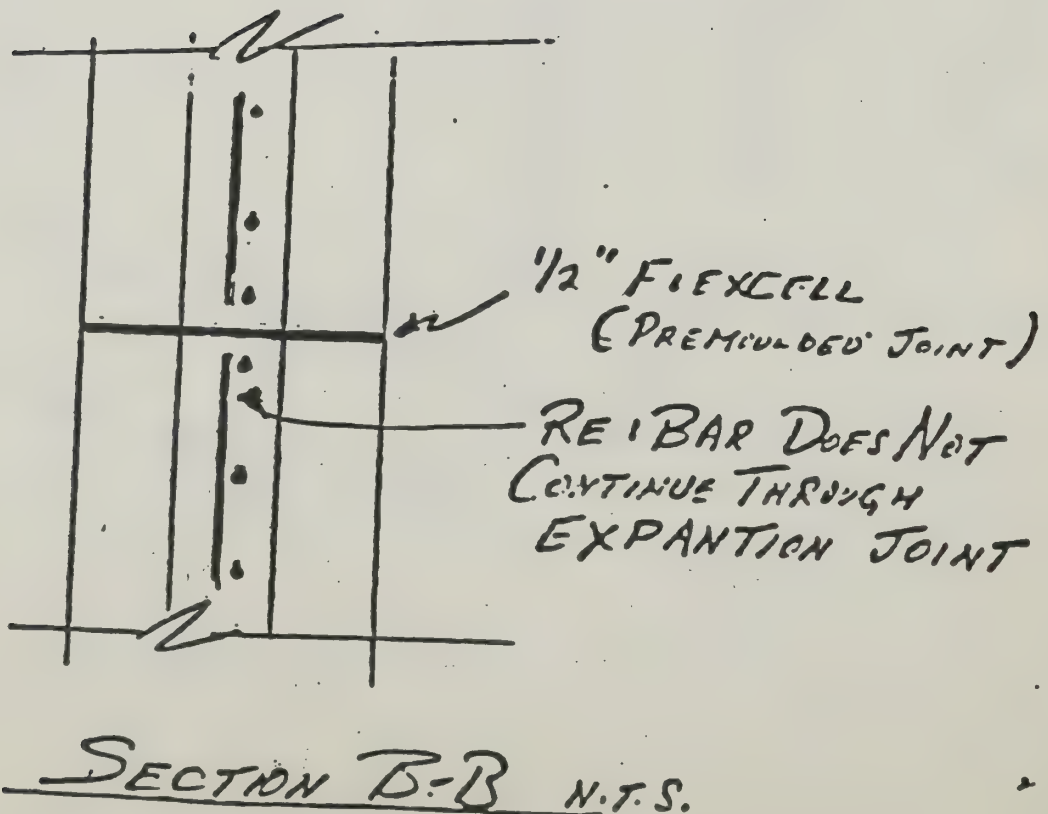 1/2" FLEXCELL
(PREMOULDED JOINT)
RE-BAR DOES NOT
CONTINUE THROUGH
EXPANTION JOINT
SECTION B-B N.T.S.